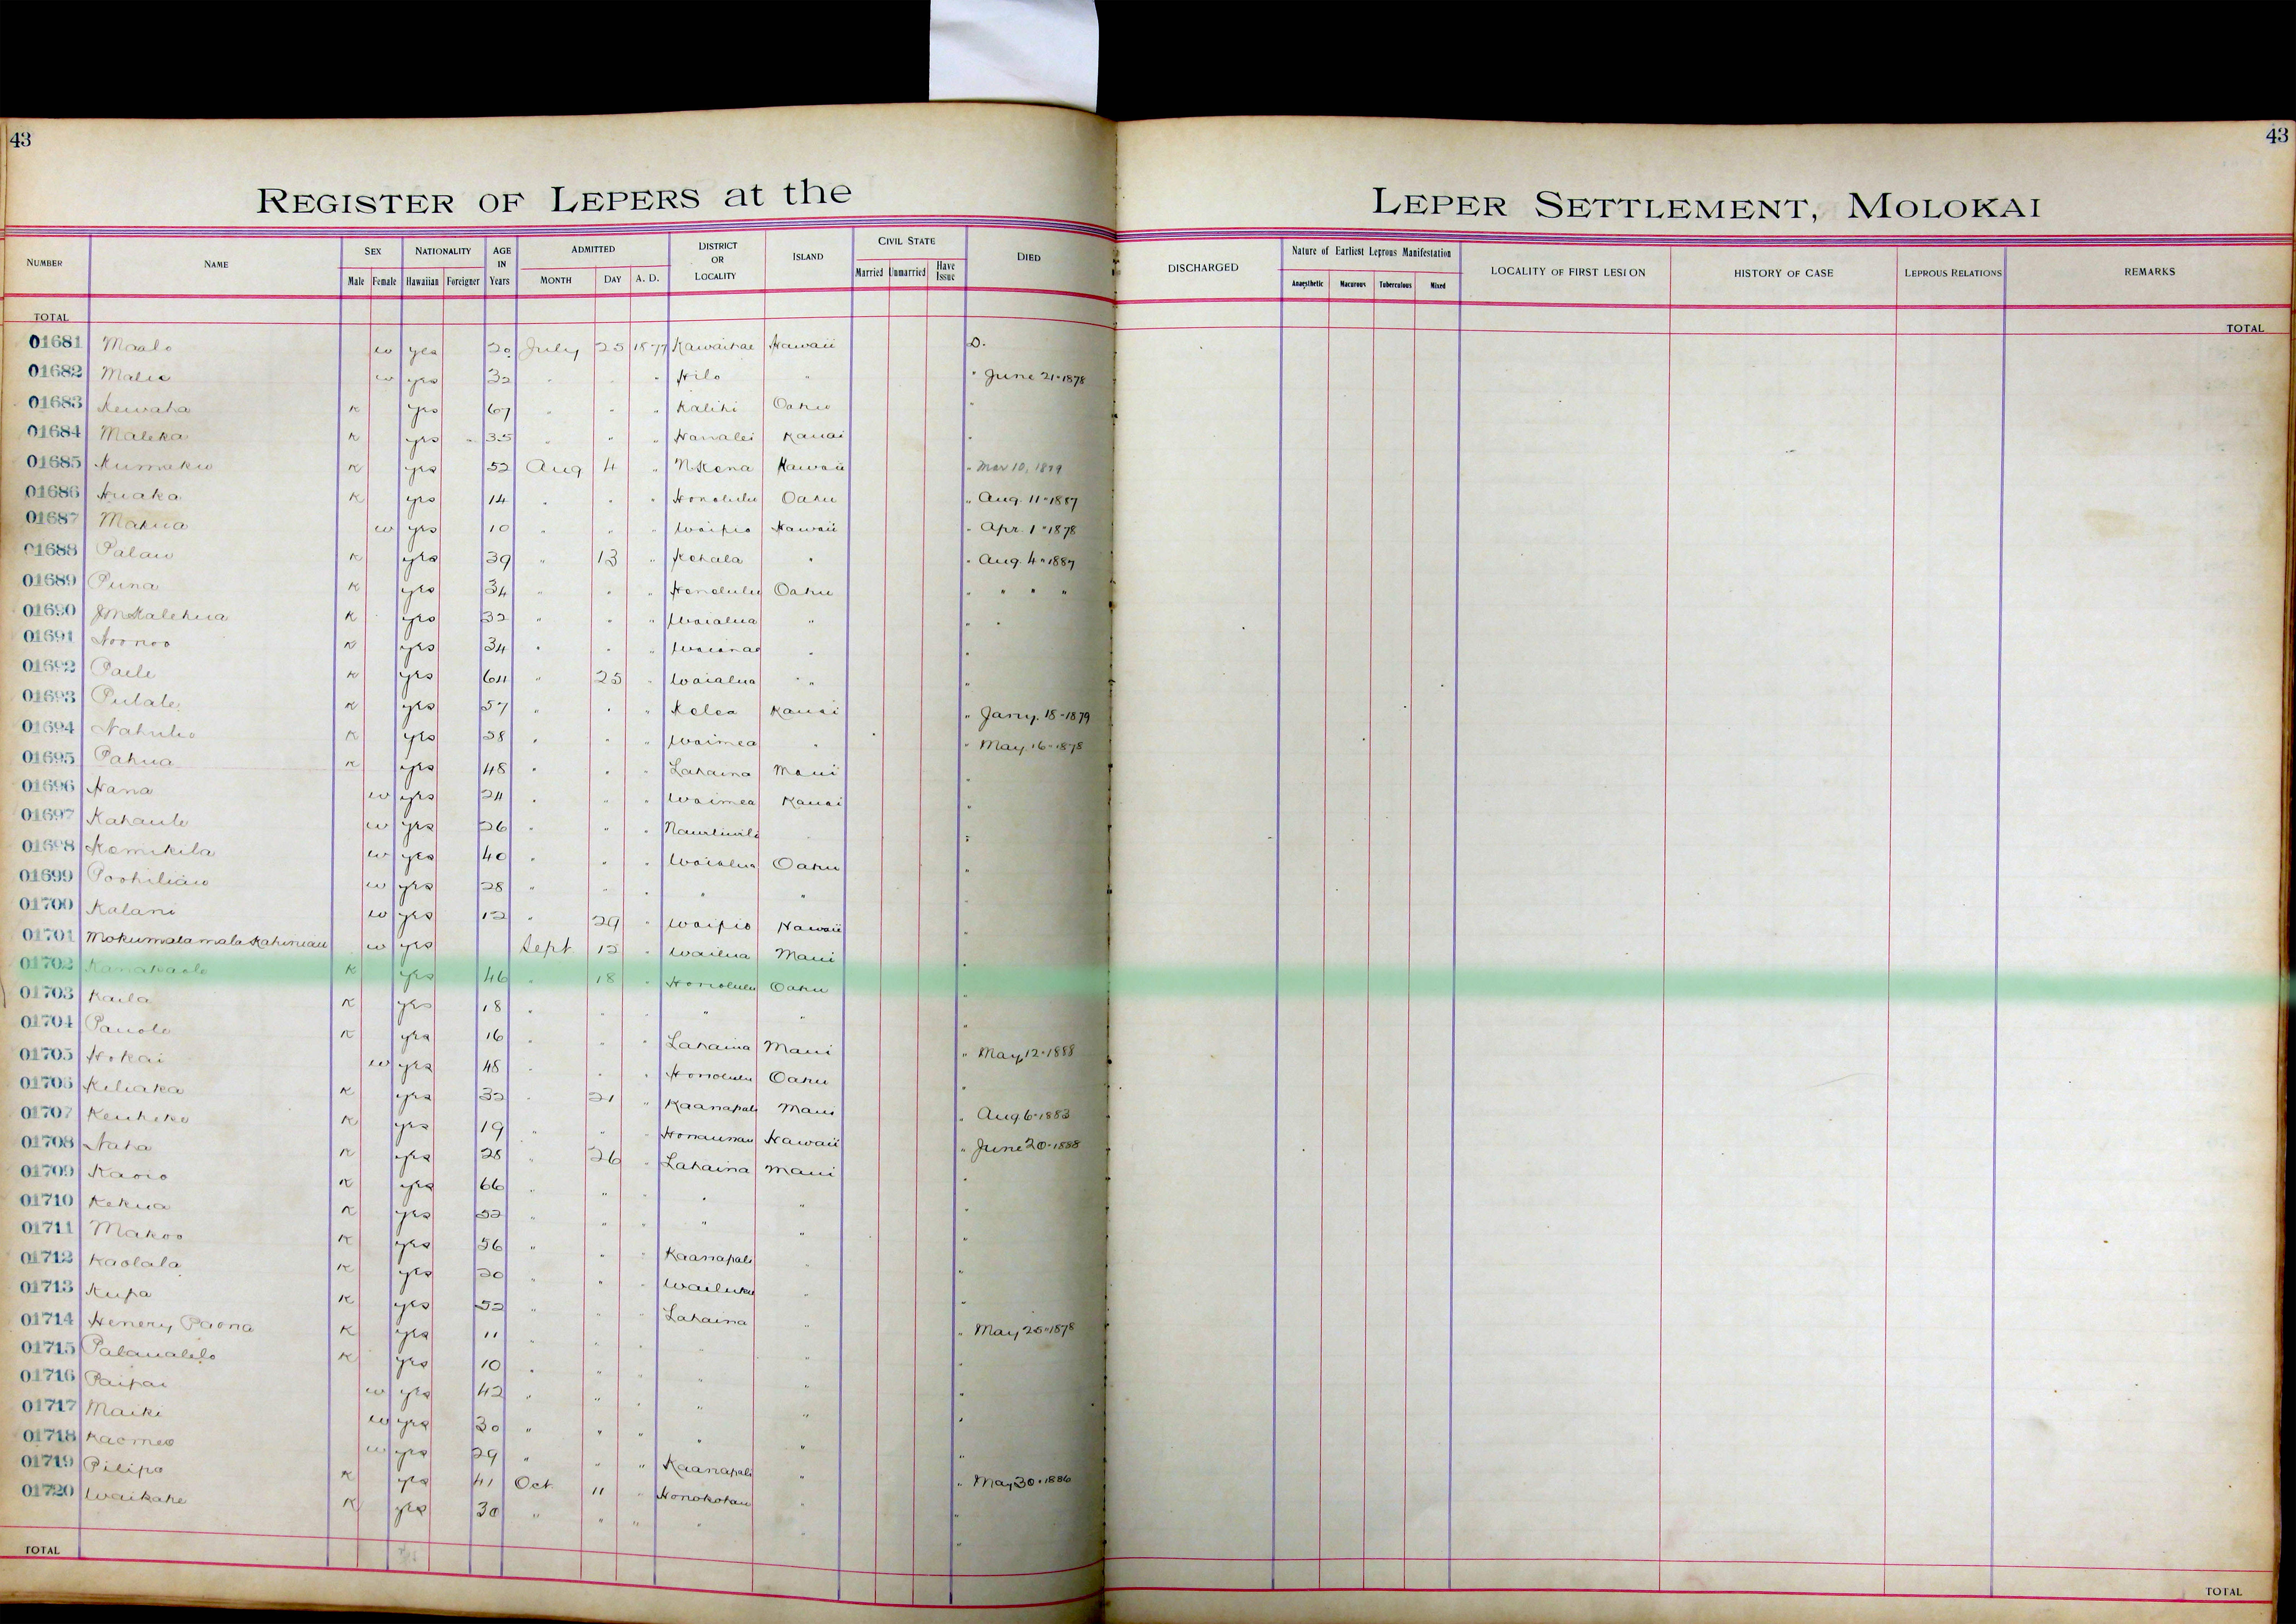 43
43
REGISTER OF LEPERS at the
LEPER SETTLEMENT, MOLOKAI
NUMBER NAME SEX NATIONALITY AGE IN Years ADMITTED DISTRICT OR LOCALITY ISLAND CIVIL STATE DIED
Male Female Hawaiian Foreigner MONTH DAY A. D. Married Unmarried Have Issue
DISCHARGED Nature of Earliest Leprous Manifestation LOCALITY OF FIRST LESION HISTORY OF CASE LEPROUS RELATIONS REMARKS
Anaesthetic Macurous Tuberculous Mixed
TOTAL
TOTAL
01681 Maalo w yes 20 July 25 1877 Kawaihae Hawaii D.
01682 w yes 32 " " " Hilo " " June 21-1878
01683 Kewaha K yes 67 " " " Kalihi Oahu "
01684 Maleka K yes 35 " " " Hanalei Kauai "
01685 Kumaku K yes 52 Aug 4 " N Kona Hawaii " Mar 10, 1879
01686 Huaka K yes 14 " " " Honolulu Oahu " Aug. 11-1887
01687 Mahua w yes 10 " " " Waipio Hawaii " Apr. 1-1878
01688 Palau K yes 39 " 13 " Kohala " " Aug. 4-1887
01689 Puna K yes 34 " " " Honolulu Oahu " " " "
01690 J M Kalehua K yes 32 " " " Waialua " " "
01691 Noonoo K yes 34 " " " Waianae " "
01692 K yes 64 " 25 " Waialua " "
01693 Pulale K yes 57 " " " Kolea Kauai " Jany. 18-1879
01694 K yes 28 " " " Waimea " " May. 16-1878
01695 Pahua K yes 48 " " " Lahaina Maui "
01696 Hana w yes 24 " " " Waimea Kauai "
01697 w yes 26 " " " "
01698 Kamikila w yes 40 " " " Waialua Oahu "
01699 Poohiliau w yes 28 " " " " "
01700 Kalani w yes 12 " 29 " Waipio Hawaii "
01701 Mokumalamala Kahiniau w yes Sept 12 " Wailua Maui "
01702 K yes 46 " 18 " Honolulu Oahu "
01703 Kaila K yes 18 " " " " " "
01704 Panole K yes 16 " " " Lahaina Maui " May 12-1888
01705 Hokai w yes 48 " " " Honolulu Oahu "
01706 Keliaka K yes 32 " 21 " Kaanapali Maui " Aug 6-1883
01707 K yes 19 " " " Honaunau Hawaii " June 20-1888
01708 Naha K yes 28 " 26 " Lahaina Maui "
01709 K yes 66 " " " " " "
01710 Kekua K yes 52 " " " " " "
01711 Makoo K yes 56 " " " Kaanapali " "
01712 Kaolala K yes 20 " " " Wailuku " "
01713 Kupa K yes 52 " " " Lahaina " " May 25-1878
01714 Henery Paona K yes 11 " " " " " "
01715 Palaualelo K yes 10 " " " " " "
01716 Paipai w yes 42 " " " " " "
01717 Maiki w yes 30 " " " " " "
01718 w yes 29 " " " Kaanapali " " May 30-1886
01719 Pilipo K yes 41 Oct 11 " Honokohau " "
01720 Waikahe K yes 30 " " " " " "
TOTAL
TOTAL